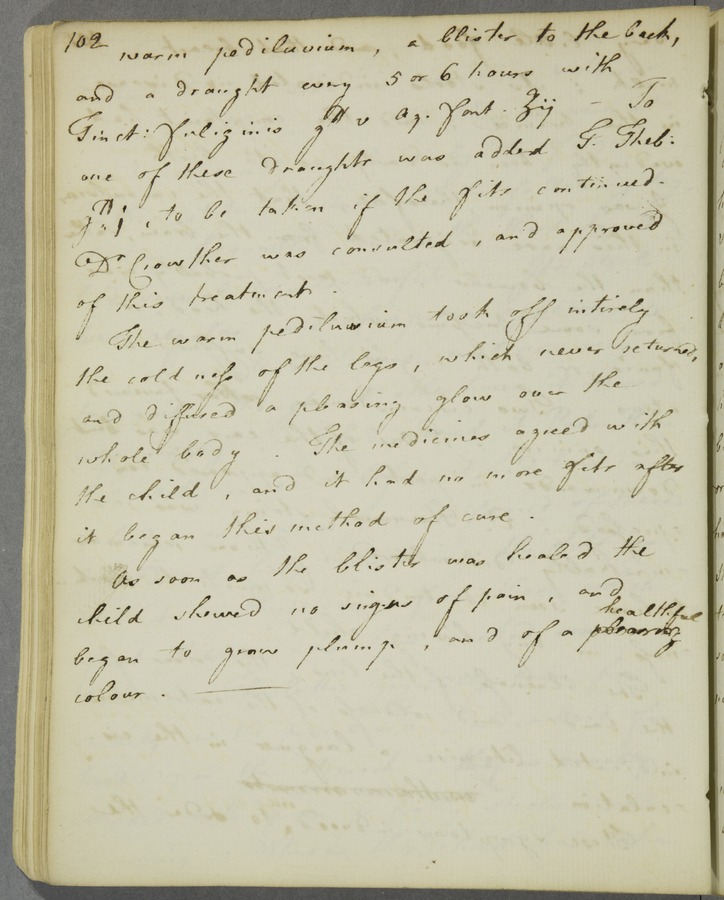 102
warm pediluvium, a blister to the back,
and a draught every 5 or 6 hours with
Tinct: fuliginis gtt v aq. font. ℥ij - To
one of these draughts was added T. Theb:
gtt j, to be taken if the fits continued.
Dr Crowther was consulted, and approved
of this treatment.
The warm pediluvium took off intirely
the coldness of the legs, which never returned,
and diffused a pleasing glow over the
whole body. The medicines agreed with
the child, and it had no more fits after
it began this method of cure.
As soon as the blister was healed the
child shewed no signs of pain, and
began to grow plump, and of a pleasing healthful
colour.